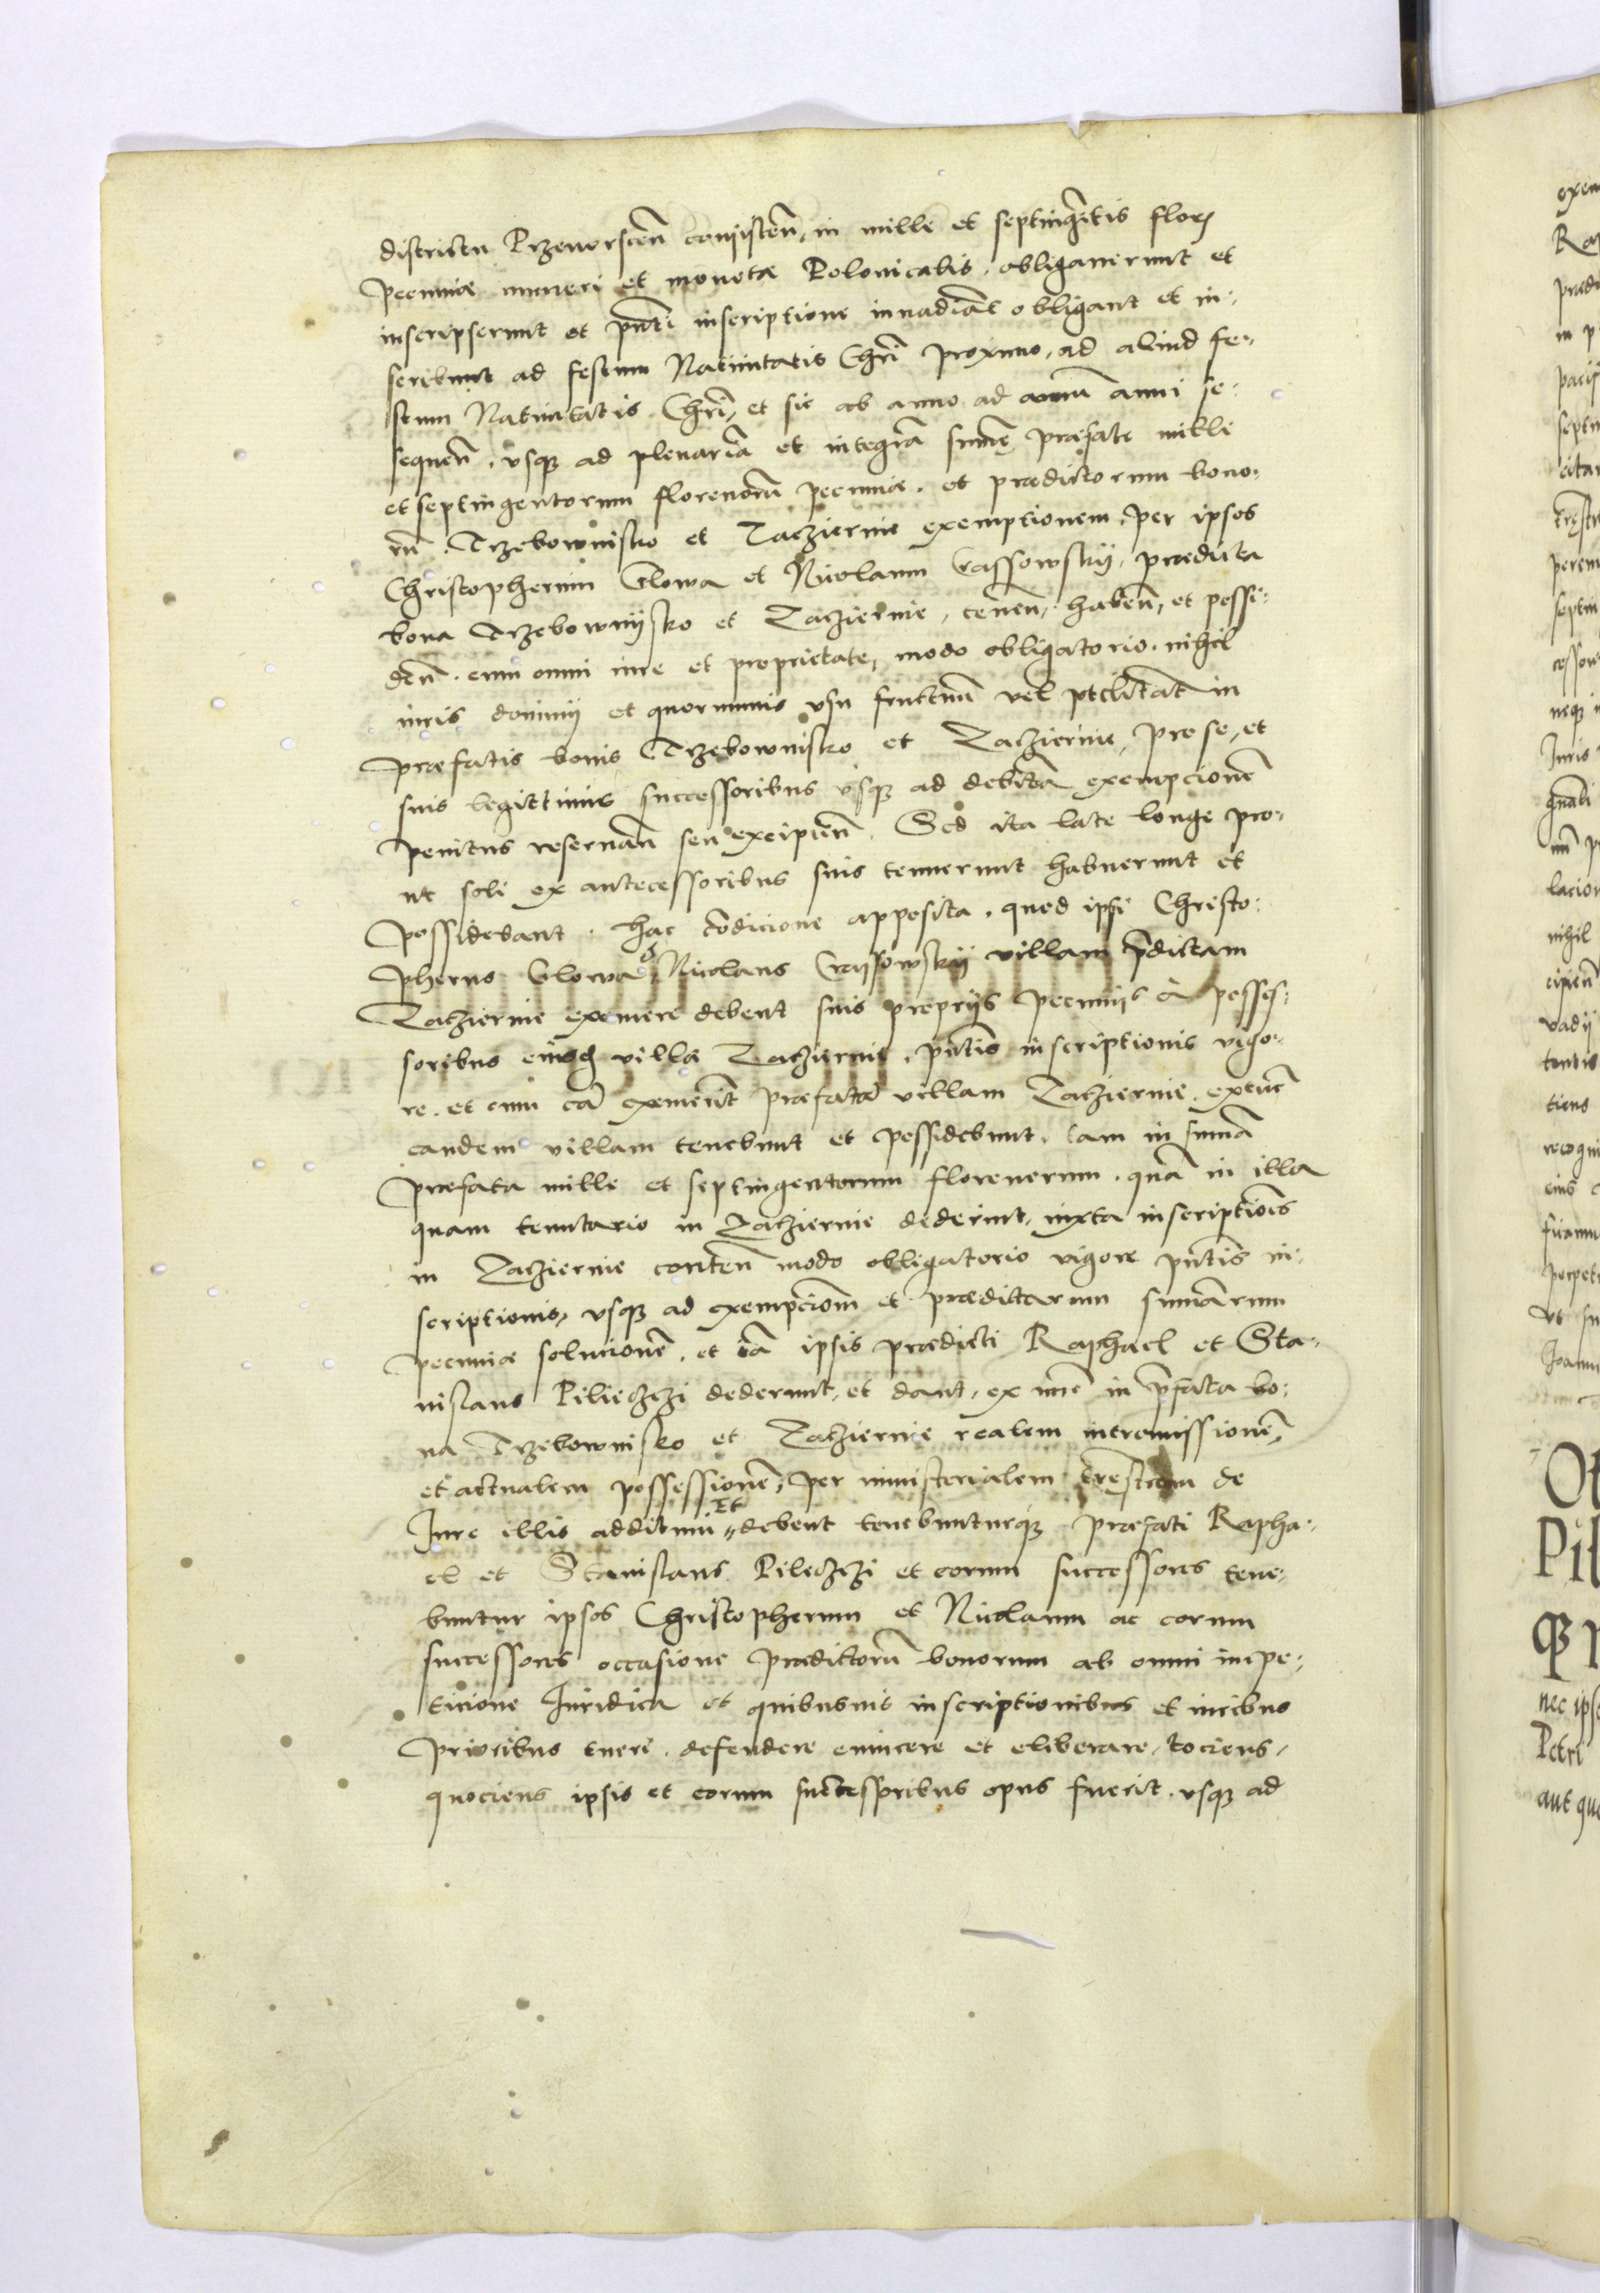 districtu Przeuorscen̄ consisten̄, in mille et septingētis floren̄
pecuniæ numeri et monetæ Polonicalis, obligauerunt et
inscripserunt et pn̄ti inscriptione inuadiāt obligant et in-
scribunt ad festum Natiuitatis Chrī proximo, ad aliud fe-
stum Natiuitatis Chrī, et sic ab anno ad annū anni se-
sequen̄, vsqȝ ad plenariā et integrā sum̄ę præfate mille
et septingentorum florenorū pecuniæ, et prædictorum bono-
rū Trzebownisko et Zacziernie exemptionem, per ipsos
Christopherum Glowa et Nicolaum Cassowskÿ, prædicta
bona Trzebownÿsko et Zacziernie, tenen̄, haben̄, et possi-
den̄. cum omni iure et proprietate, modo obligatorio, nihil
iuris dominij et quorumuis vsu fructuū vel vtilitat̄ in
præfatis bonis Trzebownisko et Zaczierniæ, pro se, et
suis legittimis successoribus vsqȝ ad debitā exempcionē
penitus reseruan̄ seu excipien̄. Sed ita late longe pro-
ut soli ex antecessoribus suis tenuerunt habuerunt et
possidebant. hac cōdicione apposita, quod ipsi Christo-
pherus Glowa & Nicolaus Cassowskÿ villam p̄dictam
Zacziernie eximere debent suis proprijs pecunijs à posses-
soribus eiusdē villæ Zaczierniæ, pn̄tis inscriptionis vigo-
re. et cum eā exemerīt præfatā villam Zaczierniæ, extūc
eandem villam tenebunt et possidebunt, tam in sum̄a
præfata mille et septingentorum florenorum, quā in illa
quam tenutario in Zaczierniæ dederint, iuxta inscriptiōis
in Zaczierniæ conten̄ modo obligatorio vigore pn̄tis in-
scriptionis, vsqȝ ad exempciōm et prædictarum sum̄arum
pecuniæ solucionē, et iā ipsis prædicti Raphael et Sta-
nislaus Pilieczczi dederunt, et dant, ex nūc in p̄fata bo-
na Trzebownisko et Zaczierniæ realem intromissionē,
et actualem possessionē, per ministerialem t̄restrem de
Iure illis additum Et debent tenebunturqȝ præfati Rapha-
el et Stanislaus Pileczczi et eorum successores tene-
buntur ipsos Christopherum et Nicolaum ac eorum
successores occasione prædictorū bonorum ab omni impe-
ticione Iuridica et quibusuis inscriptionibus et iuribus
prioribus tueri, defendere euincere et eliberare, tociens,
quociens ipsis et eorum successoribus opus fuerit, vsqȝ ad